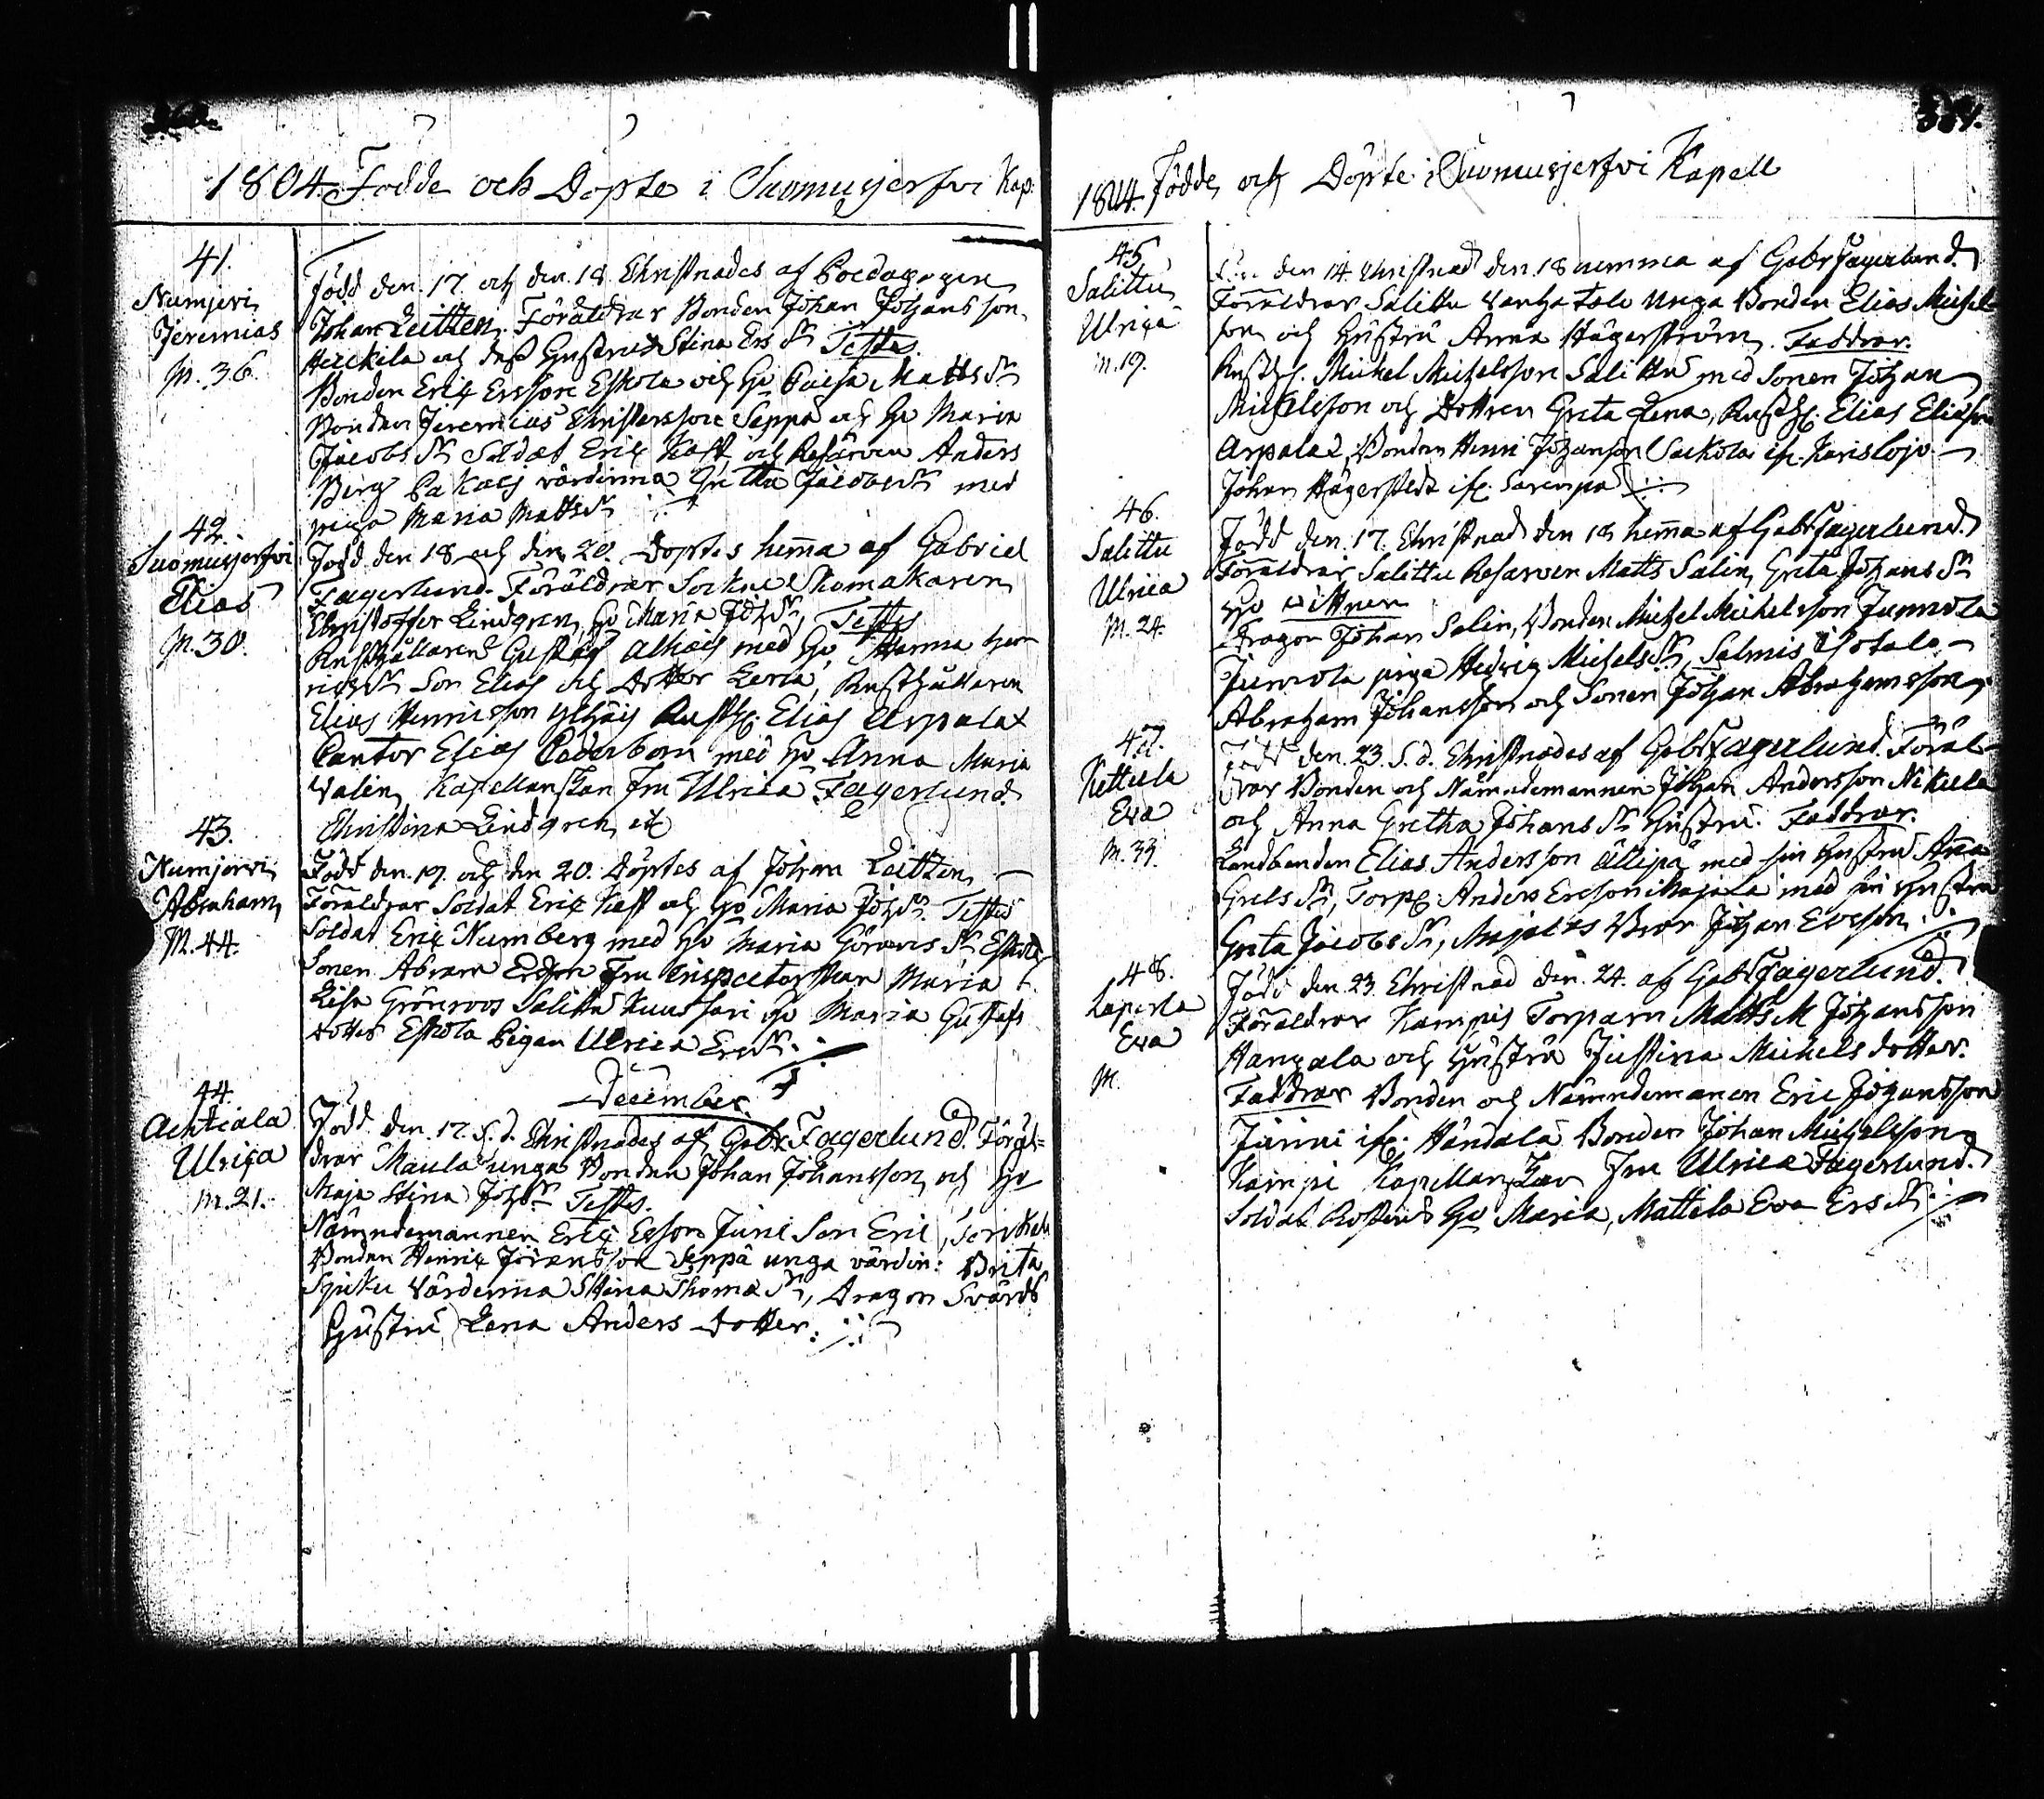 1804. Födde och Döpte i Suomusjerfvi Kap:
41.
Numjervi
Jeremias
M. 36.
Född den 17. och den 18 Christnades af Poedagogen
Johan Leitten. Föräldrar Bonden Johan Johansson
Heickila och dess Hustru Stina Ers dr Testes
Bonden Erich Ersson Eskola och Ho Caisa Matts dr
Bonden Jeremias Christersson Seppä och Ho Maria
Jacobs dr Soldat Erich Kast och Reserven Anders
Berg värdinna Gretha Jacobs dr med
piga Maria Matts dr
42.
Suomusjerfvi
Elias
M. 30.
Född den 18 och den 20. Döptes hema af Gabriel
Fagerlund. Föräldrar Sockne Skomakaren
Christoffer Lindgren, Ho Maria Joh dr, Testes
Rusthållaren Gustaf Alhais med Ho Hanna Hen
richs dr Son Elias och Dotter Lena, Rusthållaren
Elias Henricsson Ylhäis Rusth: Elias Arpala
Cantor Elias Cederbom med Ho Anna Maria
Valin, Kapellanskan Fru Ulrica Fagerlund
Christina Lindgren etc
43.
Numjervi
Abraham
M. 44.
Född den 19. och den 20. Döptes af Johan Leitten
Föräldrar Soldat Erich Kast och Ho Maria Joh dr. Testes
Soldat Erich Numberg med Ho Maria Görans dr, Eskola
Sonen Abram Ersson Fru Inspectorskan Maria
Lisa Grönroos Salittu Kuussari Ho Maria Gustafs
dotter Eskola Pigan Ulrica Ers dr.
December.
44.
Achtiala
Ulrica
M. 21.
Född den 17. S. d. Christnades af Gabr Fagerlund. Föräl=
drar Maula unga Bonden Johan Johansson och Ho
Maja Stina Joh dr Testes.
Nämndemannen Erich Ersson Juni Son Eric,
Bonden Henrich Jöransson Seppä unga värdin: Brita
värdinna Stina Thomas dr, Dragon Svärds
Hustru Lena Anders dotter.
1804. Födde och Döpte i Suomusjerfvi Kapell
45.
Salittu
Ulrica
M. 19.
den 14. Christnad den 18 hemma af Gabr Fagerlund.
Föräldrar Salittu Vanha Talo Unga Bonden Elias Michel
son och Hustru Anna Hägerström. Faddrar.
Rusth: Michel Michelsson Salittu med Sonen Johan
Michelsson och Dottren Greta Lena, Rusth: Elias Eliasson
Arpala, Bonden Henri Johansson Suckola if. Karislojo
Johan Hägerstedt if.
46.
Salittu
Ulrica
M. 24.
Född den 17. Christnad den 18 hema af Gabr Fagerlund
Föräldrar Salittu Reserven Matts Salin, Greta Johans dr
Ho Vittnen
Dragon Johan Salin, Bonden Michel Michelsson Junnola
Junnola piga Hedvig Michels dr, Salmis Isotalo
Abraham Johansson och Sonen Johan Abrahamsson
47.
Kettula
Eva
M. 33.
Född den 23. S. d. Christnades af Gabr Fagerlund. Föräl
drar Bonden och Nämndemannen Johan Andersson Nikula
och Anna Gretha Johans dr Hustru. Faddrar.
Landbonden Elias Andersson Ällipä med sin Hustru Anna
Grels dr, Torp: Anders Ersson Majala med sin Hustru
Greta Jacobs dr, Majalas Bror Johan Ersson
48.
Laperla
Eva
M.
Född den 23. Christnad den 24. af Gabr Fagerlund.
Föräldrar Kampis Torparn Matts M Johansson
Hangala och Hustru Justina Michels dotter.
Faddrar Bonden och Nämndemannen Eric Johansson
Junni if: Bonden Johan Michelsson
Kampi Kapellanskan Fru Ulrica Fagerlund.
Soldat Ho Maria, Mattila Eva Ers dr